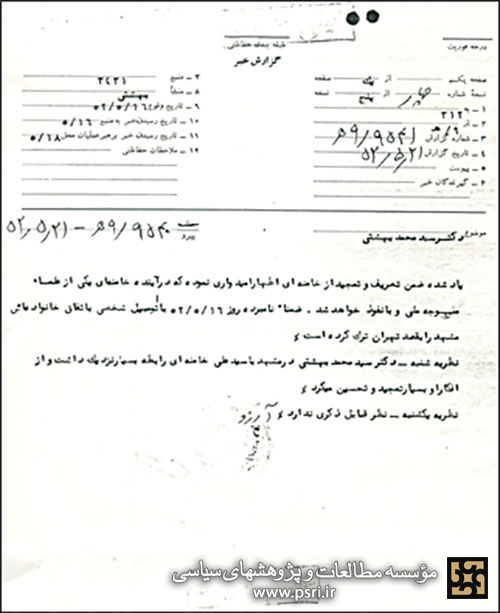 درجه فوریت
طبقه بندی حفاظتی
گزارش خبر
صفحه یکم از صفحه
نسخه شماره از پنج نسخه
۱ - به
۲ - از ۲۱۲
۳ - شماره گزارش ۹۵۴۱/ه‍ ۹
۴ - تاریخ گزارش ۵۲٫۵٫۲۱
۵ - پیوست
۶ - گیرندگان خبر
۷ - منبع ۲۴۲۱
۸ - منشأ بهشتی
۹ - تاریخ وقوع ۵۲/۵/۱۶
۱۰ - تاریخ رسیدن خبر به منبع ۵/۱۶
۱۱ - تاریخ رسیدن خبر برهبر عملیات محل ۵/۱۸
۱۲ - ملاحظات حفاظتی
موضوع دکتر سید محمد بهشتی
پیرو ۵۲٫۵٫۲۱ -
یاد شده ضمن تعریف و تمجید از خامنه ای اظهار امیدواری نموده که در آینده خامنه‌ای یکی از علماء
متوجه ملی و با نفوذ خواهد شد . ضمنا" نامبرده روز ۵۲/۵/۱۶ با اتومبیل شخصی باتفاق خانواده اش
مشهد را بقصد تهران ترک کرده است
نظریه شنبه - دکتر سید محمد بهشتی در مشهد با سید علی خامنه ای رابطه بسیار نزدیک داشت و از
افکار او بسیار تمجید و تحسین میکرد
نظریه یکشنبه - نظر قابل ذکری ندارد آرزو
مؤسسه مطالعات و پژوهشهای سیاسی
www.psri.ir